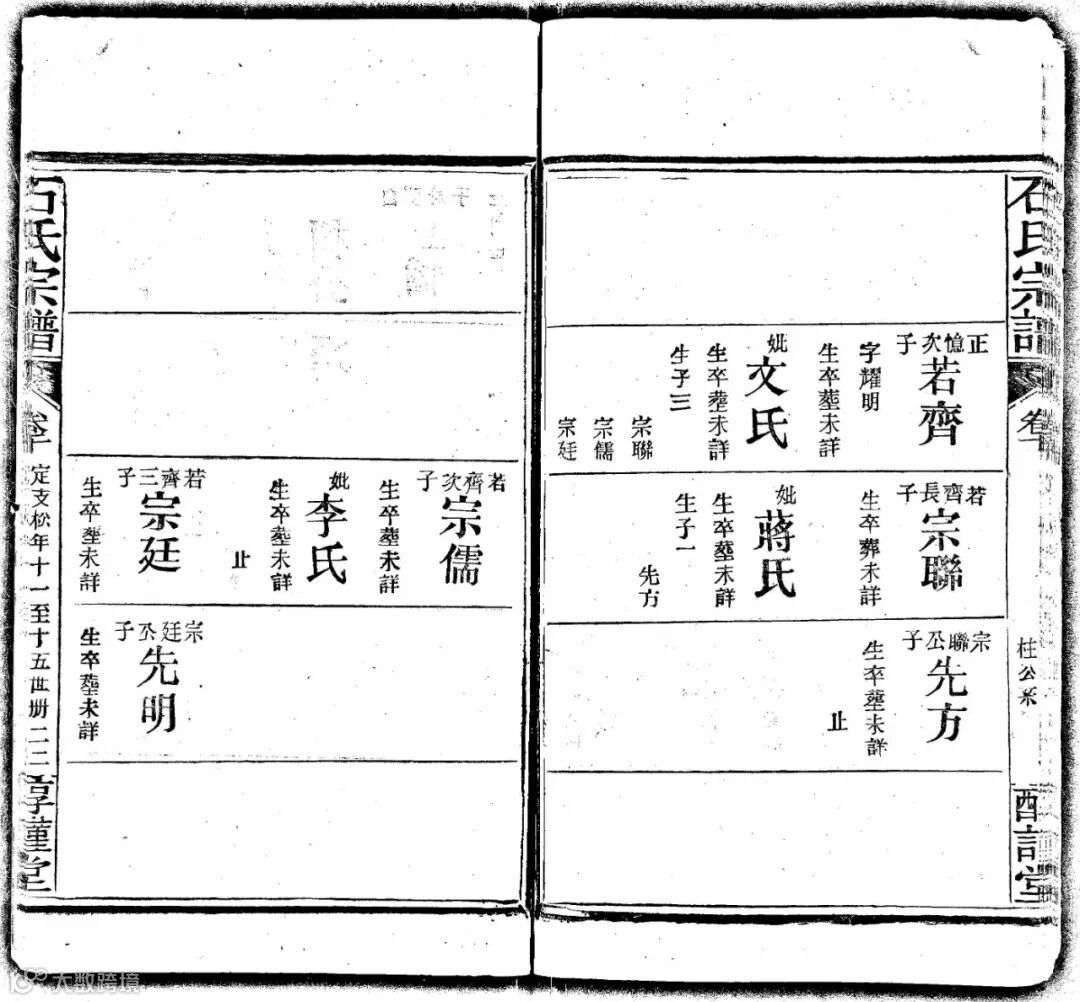 石氏宗譜
卷十
柱公系
正憶次子
若齊
字耀明
生卒塟未詳
妣
文氏
生卒塟未詳
生子三
宗聯
宗儒
宗廷
若齊長子
宗聯
生卒葬未詳
妣
蔣氏
生卒塟未詳
生子一
先方
宗聯公子
先方
生卒塟未詳
止
若齊次子
宗儒
生卒塟未詳
妣
李氏
生卒塟未詳
止
若齊三子
宗廷
生卒塟未詳
宗廷公子
先明
生卒塟未詳
石氏宗譜
卷十
定支松年十一至十五世册二二
大数跨境